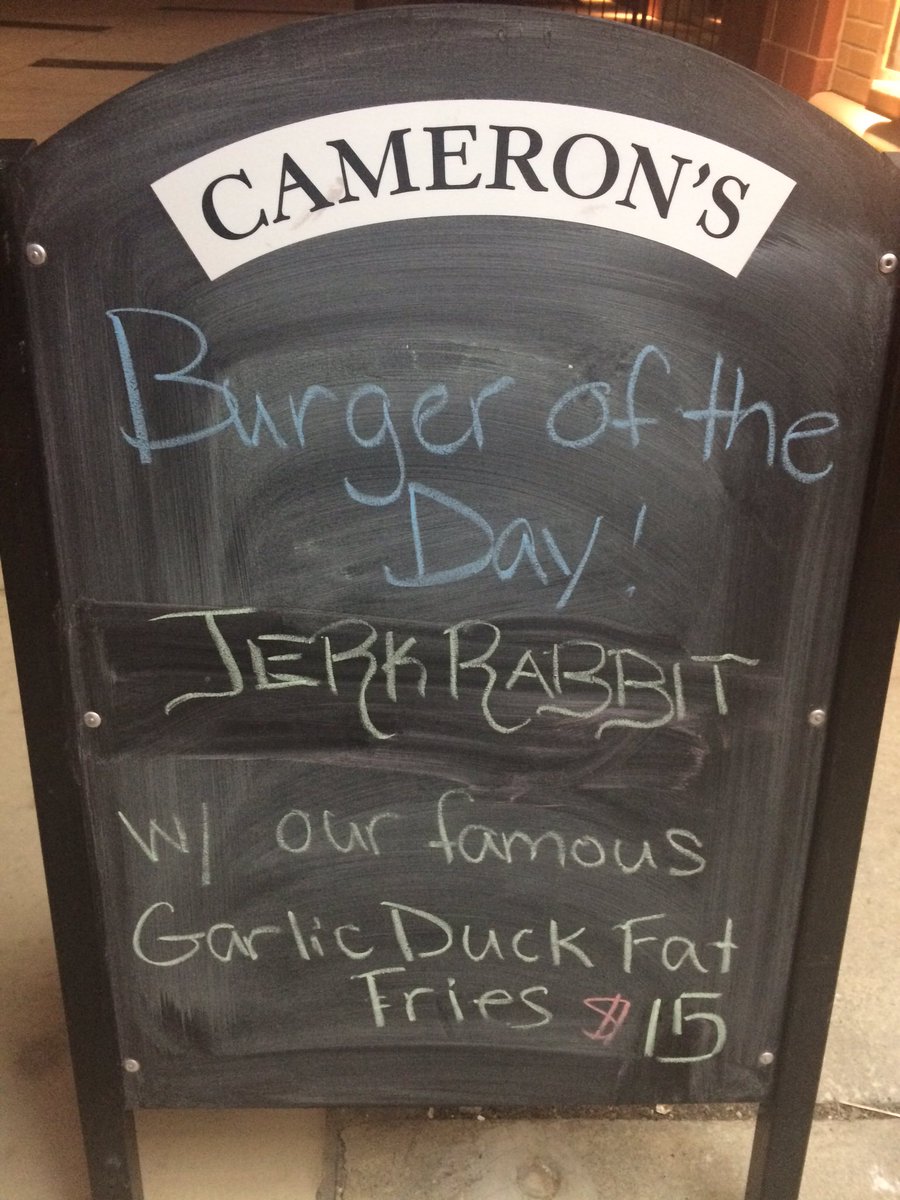 CAMERON'S
Burger of the
Day!
JERK RABBIT
w/ our famous
Garlic Duck Fat
Fries $15